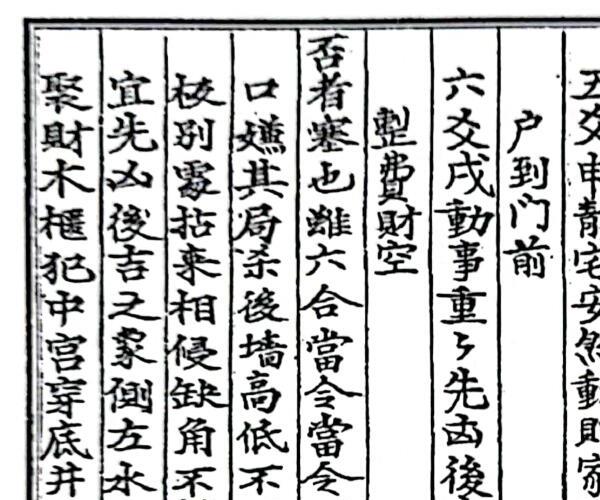 五爻申青宅安然動財家
户到门前
六爻戌動事重〻先凶後
整費財空
否者塞也雖六合當令當令
口嬚其局杀後墙高低不
枝别處拈来相侵缺角不
宜先凶後吉之象側左水
聚財木櫃犯中宫穿底井